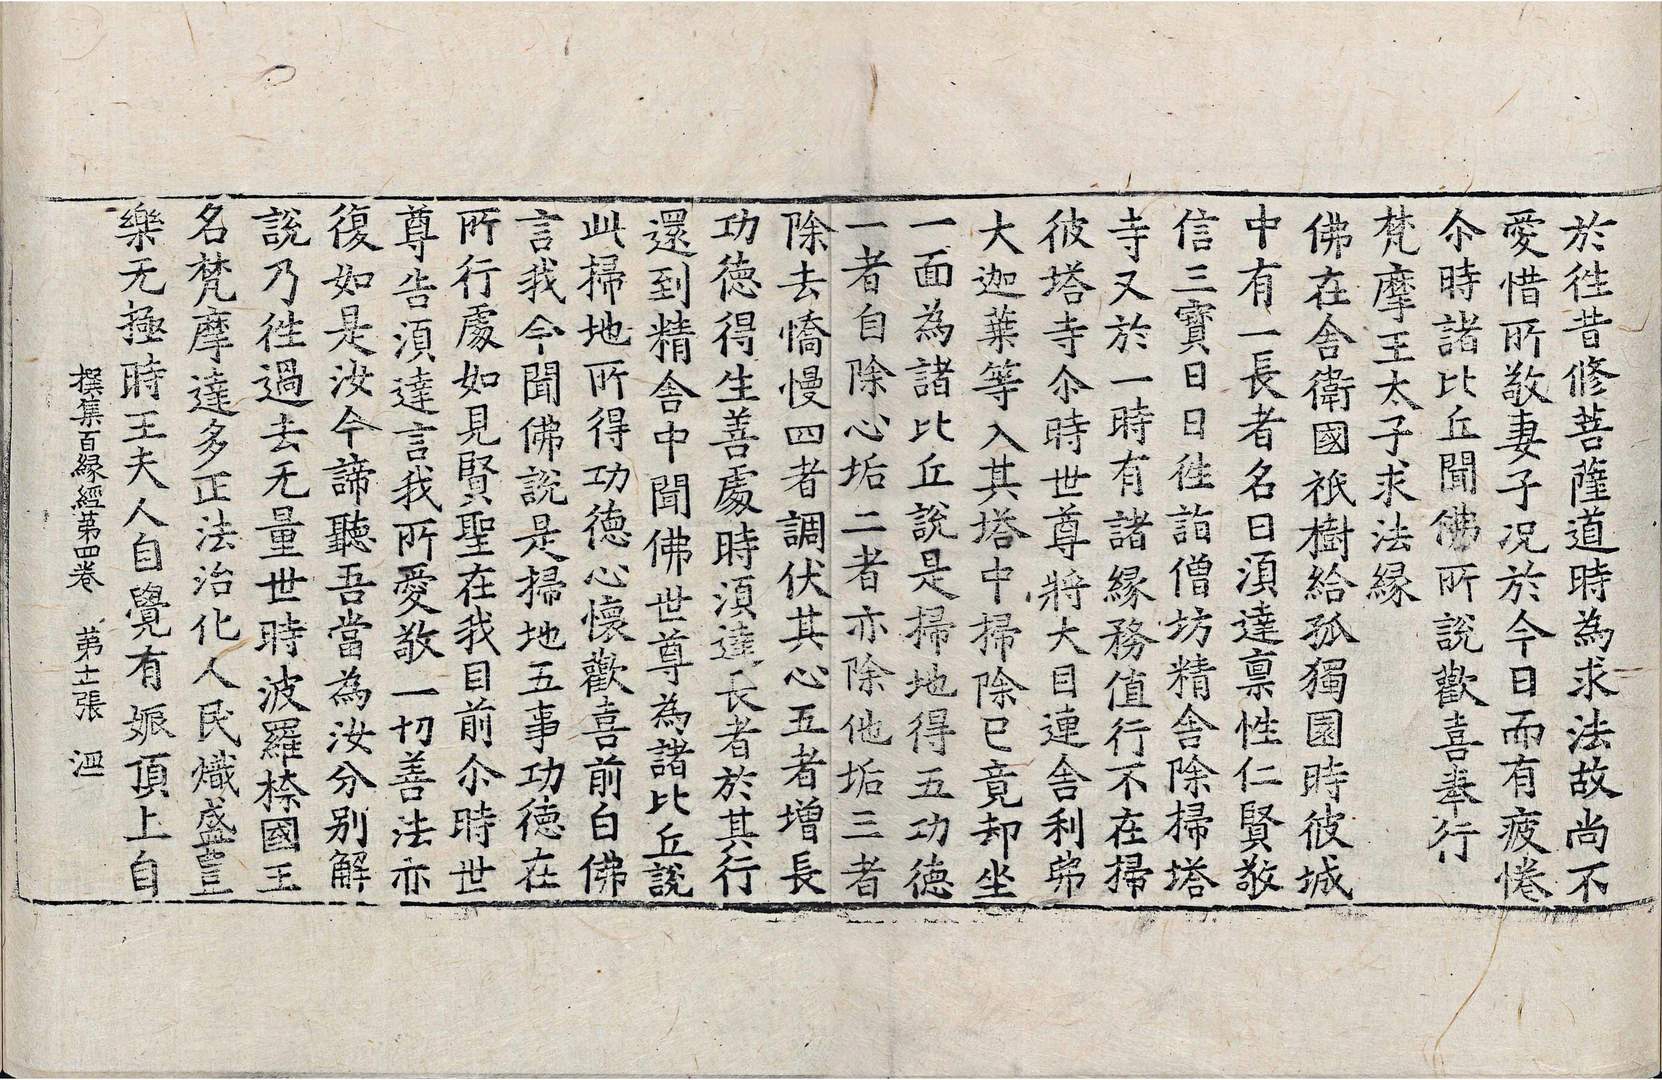 於徃昔修菩薩道時為求法故尚不
愛惜所敬妻子况於今日而有疲惓
尒時諸比丘聞佛所說歡喜奉行
梵摩王太子求法緣
佛在舍衛國祇樹給孤獨園時彼城
中有一長者名曰湏達禀性仁賢敬
信三寶日日徃詣僧坊精舍除掃塔
寺又於一時有諸緣務值行不在掃
彼塔寺尒時世尊將大目連舍利弗
大迦葉等入其塔中掃除已竟却坐
一面為諸比丘說是掃地得五功德
一者自除心垢二者亦除他垢三者
除去憍慢四者調伏其心五者增長
功德得生善處時湏達長者於其行
還到精舍中聞佛世尊為諸比丘說
此掃地所得功德心懷歡喜前白佛
言我今聞佛說是掃地五事功德在
所行處如見賢聖在我目前尒時世
尊告湏達言我所愛敬一切善法亦
復如是汝今諦聽吾當為汝分別解
說乃徃過去无量世時波羅㮈國王
名梵摩達多正法治化人民熾盛豊
樂无極時王夫人自覺有娠頂上自
撰集百緣經第四卷 第十二張 洫